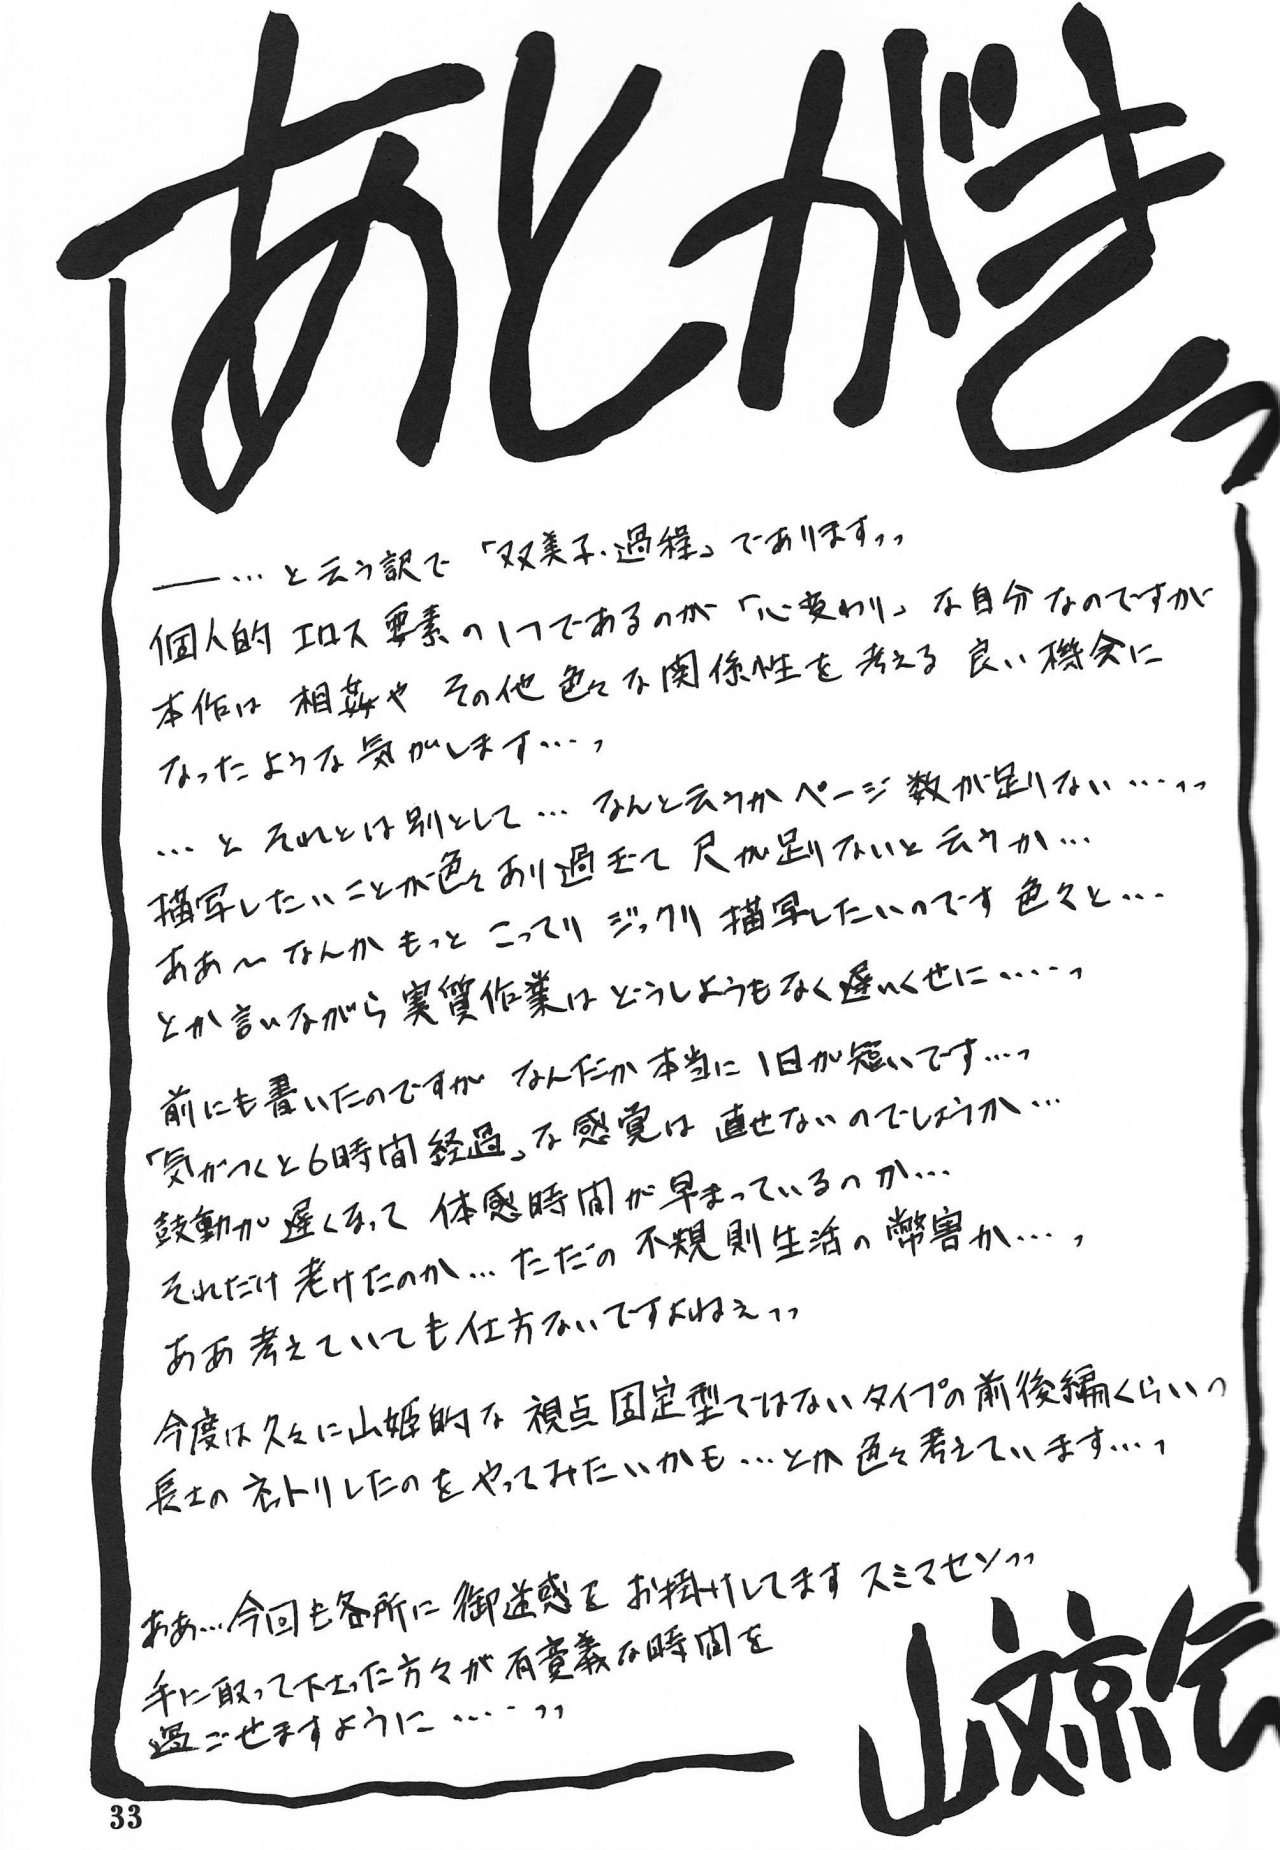 あとがきっ
――…と云う訳で「双美子・過程」でありますっっ
個人的エロス要素の1つであるのが「心変わり」な自分なのですが
本作は相姦やその他色々な関係性を考える良い機会に
なったような気がします…っ
…とそれとは別として…なんと云うかページ数が足りない…っっ
描写したいことが色々あり過ぎて尺が足りないと云うか…
ああ〜なんかもっとこってりジックリ描写したいのです色々と…
とか言いながら実質作業はどうしようもなく遅いくせに……っ
前にも書いたのですがなんだか本当に1日が短いです…っ
「気がつくと6時間経過」な感覚は直せないのでしょうか…
鼓動が遅くなって体感時間が早まっているのか…
それだけ老けたのか…ただの不規則生活の弊害か…っ
ああ考えていても仕方ないですよねぇっっ
今度は久々に山姫的な視点固定型ではないタイプの前後編くらいっ
長士のネットリしたのをやってみたいかも…とか色々考えています…っ
ああ…今回も各所に御迷惑をお掛けしてますスミマセンっっ
手に取って下さった方々が有意義な時間を
過ごせますように……っっ
山文京伝
33